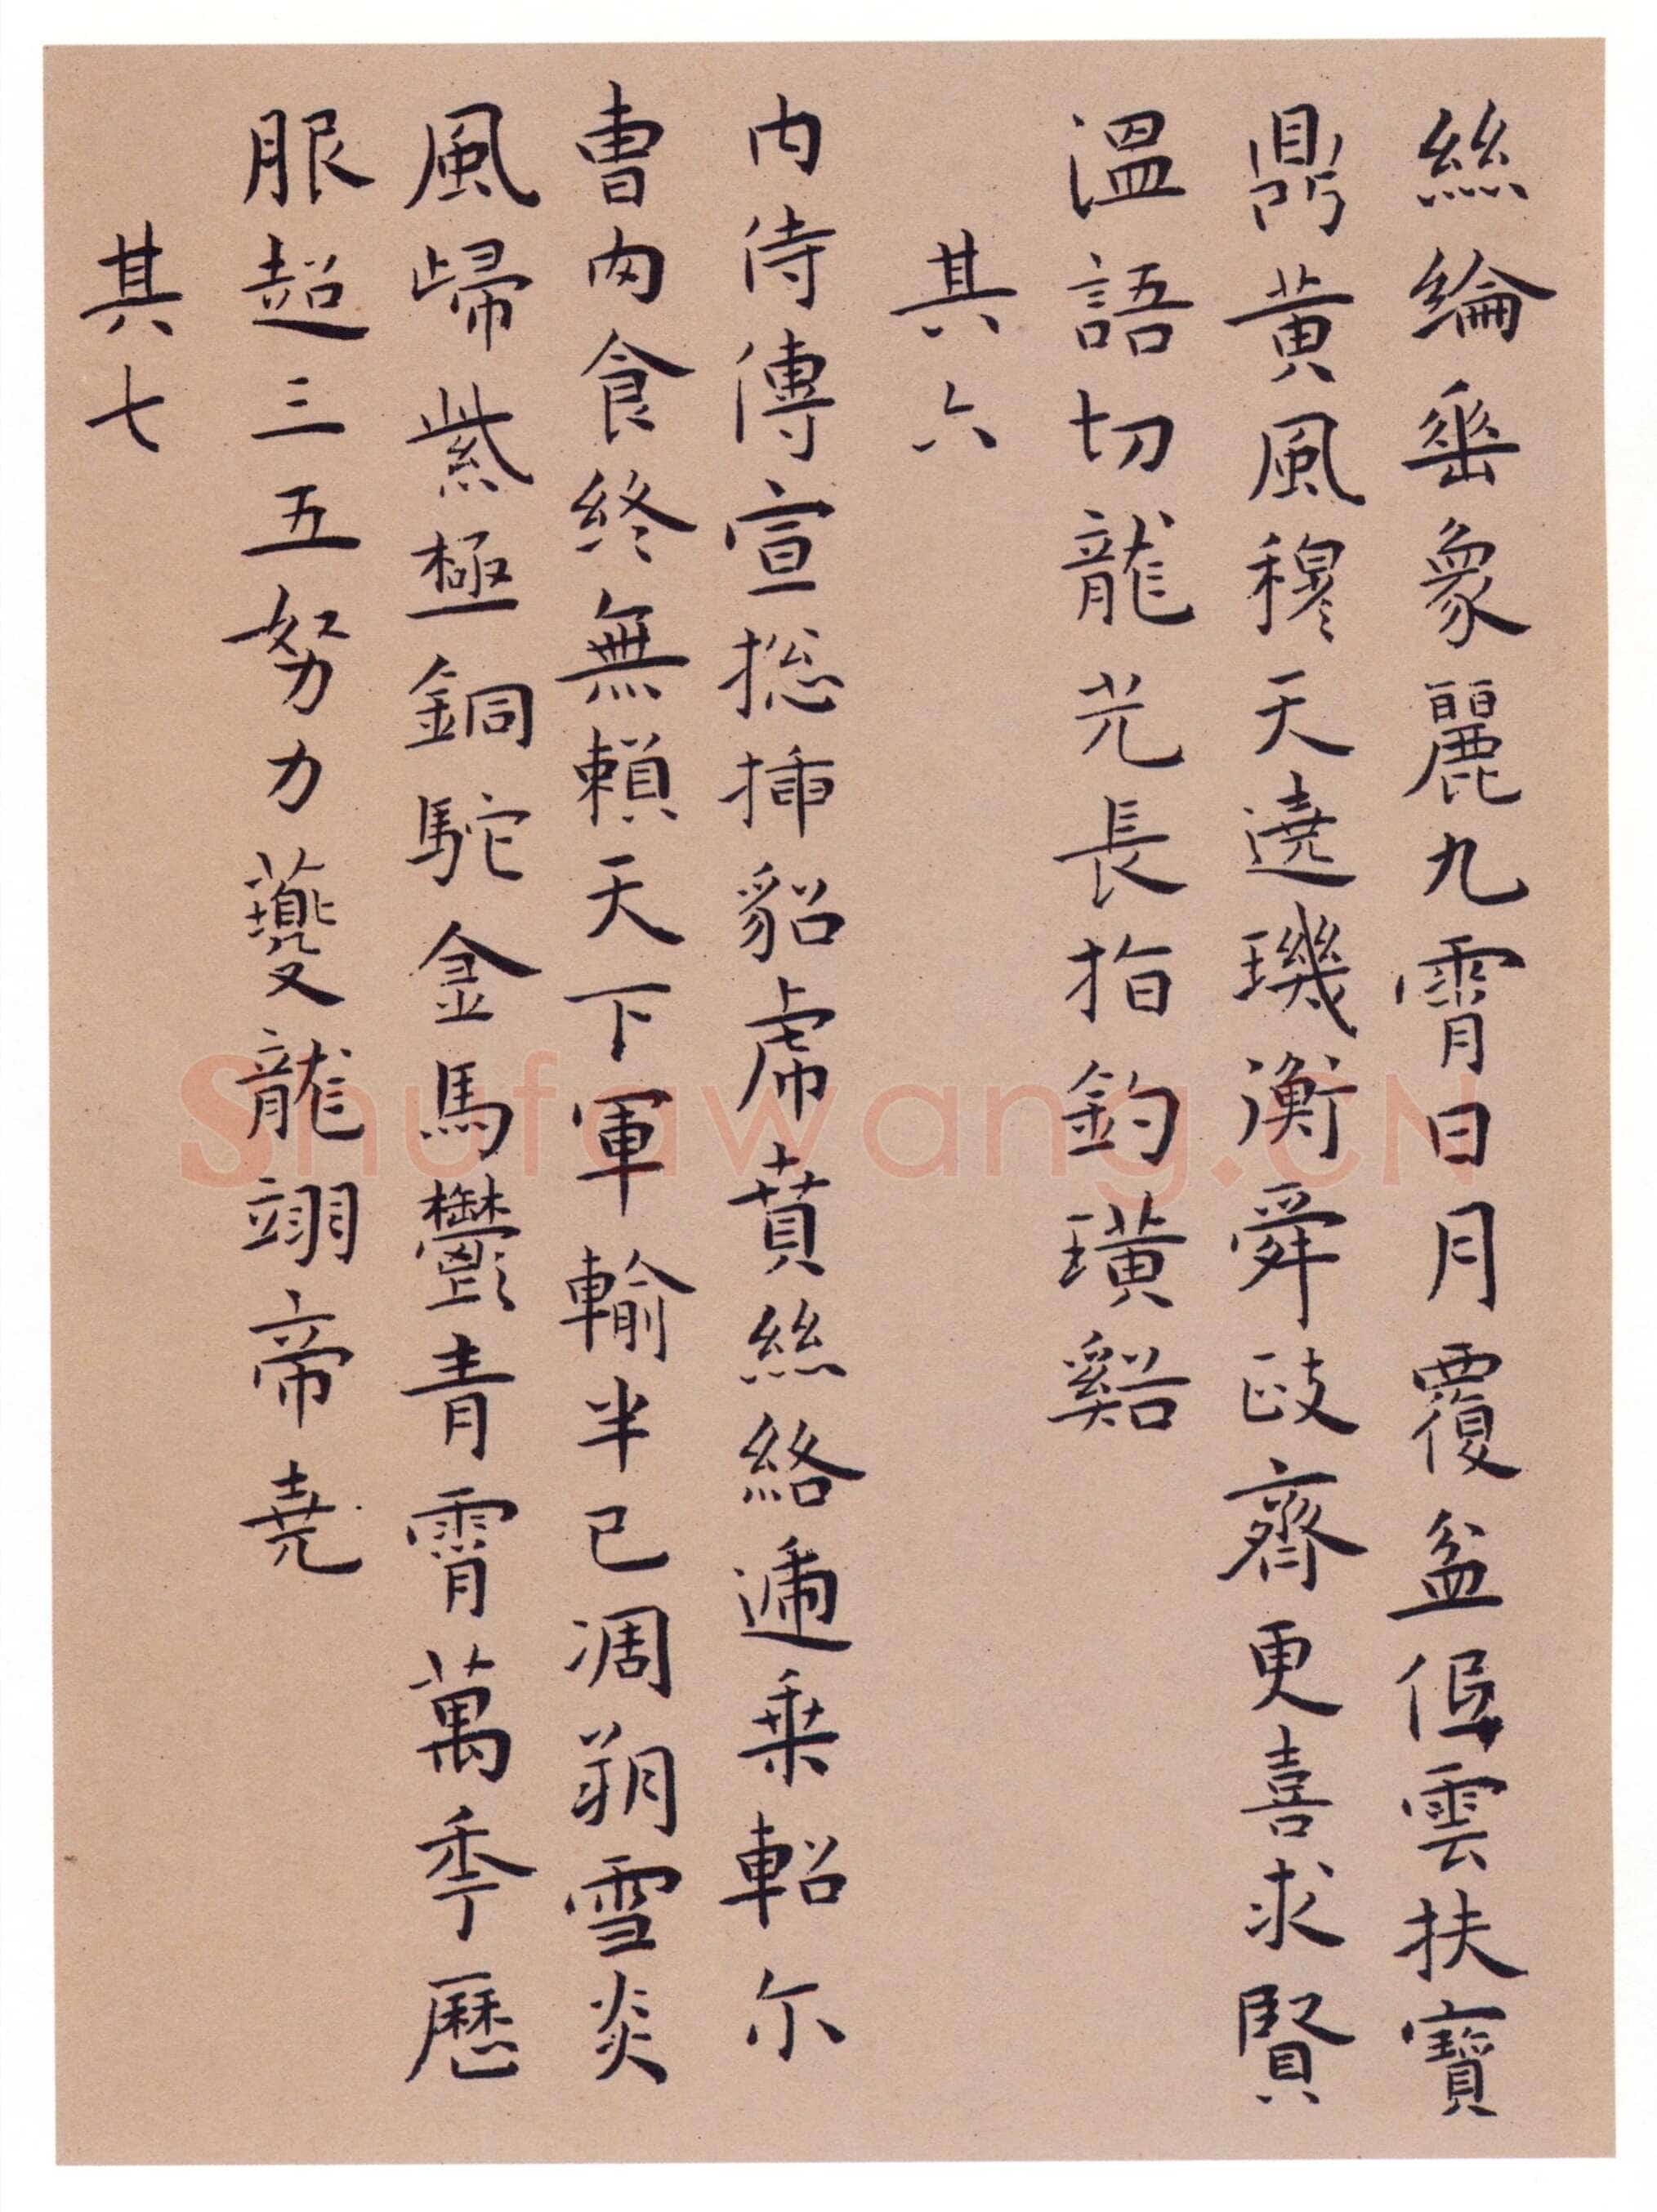 絲綸垂象麗九霄日月覆盆低雲扶寶
鼎黄風穆天遶璣衡舜政齊更喜求賢
溫語切龍光長指釣璜谿
其六
内侍傳宣捴揷貂虎賁絲絡遞乗軺尓
曹肉食終無賴天下軍輸半已凋朔雪炎
風歸紫極銅駝金馬鬱青霄萬秊歷
服超三五努力夔龍翊帝堯
其七
Shufawang.CN